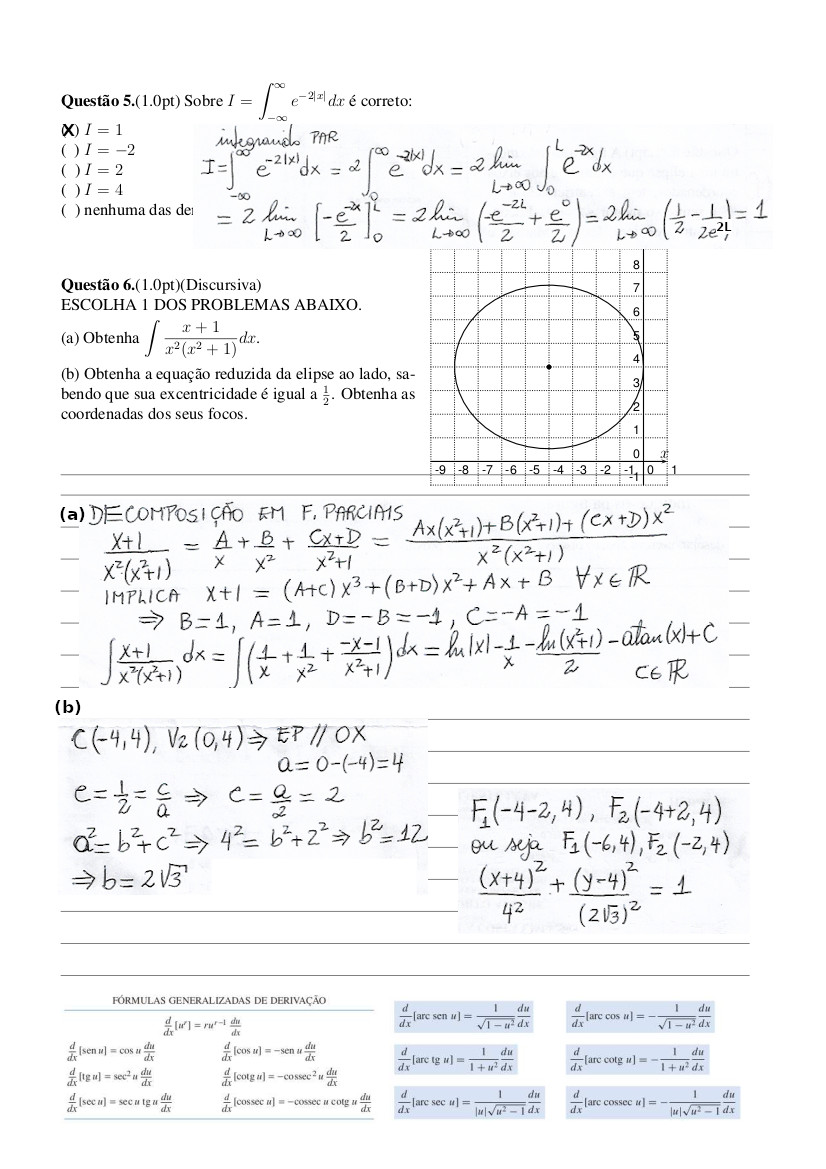 Questão 5.(1.0pt) Sobre I = ∫_{-∞}^{∞} e^{-2|x|} dx é correto:
(X) I = 1
( ) I = −2
( ) I = 2
( ) I = 4
( ) nenhuma das der
integrando PAR
I = ∫_{-∞}^{∞} e^{-2|x|} dx = 2 ∫_0^∞ e^{-2|x|} dx = 2 lim_{L→∞} ∫_0^L e^{-2x} dx
= 2 lim_{L→∞} [-e^{-2x}/2]_0^L = 2 lim_{L→∞} (-e^{-2L}/2 + e^0/2) = 2 lim_{L→∞} (1/2 - 1/2e^{2L}) = 1
Questão 6.(1.0pt)(Discursiva)
ESCOLHA 1 DOS PROBLEMAS ABAIXO.
(a) Obtenha ∫ (x + 1)/(x²(x² + 1)) dx.
(b) Obtenha a equação reduzida da elipse ao lado, sa-
bendo que sua excentricidade é igual a 1/2. Obtenha as
coordenadas dos seus focos.
8
7
6
5
4
3
2
1
0 x
-9 -8 -7 -6 -5 -4 -3 -2 -1 0 1
-1
(a) DECOMPOSIÇÃO EM F. PARCIAIS
(x+1)/(x²(x²+1)) = A/x + B/x² + (Cx+D)/(x²+1) = (Ax(x²+1)+B(x²+1)+(Cx+D)x²)/(x²(x²+1))
IMPLICA x+1 = (A+C)x³+(B+D)x²+Ax+B ∀x∈ℝ
⇒ B=1, A=1, D=-B=-1, C=-A=-1
∫ (x+1)/(x²(x²+1)) dx = ∫(1/x + 1/x² + (-x-1)/(x²+1)) dx = ln|x| - 1/x - ln(x²+1)/2 - atan(x)+C
C∈ℝ
(b)
C(-4,4), V2(0,4) ⇒ EP // OX
a=0-(-4)=4
e=1/2=c/a ⇒ c=a/2=2
a²=b²+c² ⇒ 4²=b²+2² ⇒ b²=12
⇒ b=2√3
F₁(-4-2,4), F₂(-4+2,4)
ou seja F₁(-6,4), F₂(-2,4)
(x+4)²/4² + (y-4)²/(2√3)² = 1
FÓRMULAS GENERALIZADAS DE DERIVAÇÃO
d/dx [u^r] = ru^{r−1} du/dx
d/dx [sen u] = cos u du/dx d/dx [cos u] = −sen u du/dx
d/dx [tg u] = sec² u du/dx d/dx [cotg u] = −cossec² u du/dx
d/dx [sec u] = sec u tg u du/dx d/dx [cossec u] = −cossec u cotg u du/dx
d/dx [arc sen u] = 1/√(1 − u²) du/dx d/dx [arc cos u] = − 1/√(1 − u²) du/dx
d/dx [arc tg u] = 1/(1 + u²) du/dx d/dx [arc cotg u] = − 1/(1 + u²) du/dx
d/dx [arc sec u] = 1/(|u|√(u² − 1)) du/dx d/dx [arc cossec u] = − 1/(|u|√(u² − 1)) du/dx